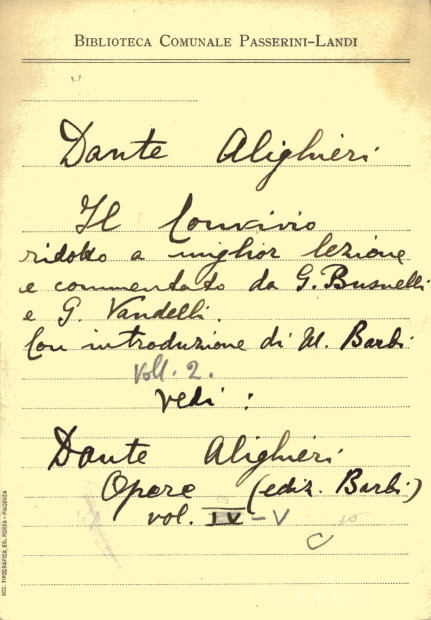 BIBLIOTECA COMUNALE PASSERINI-LANDI
Dante Alighieri
Il Convivio
ridotto a miglior lezione
e commentato da G. Busnelli
e G. Vandelli.
Con introduzione di M. Barbi
Voll. 2.
vedi :
Dante Alighieri
Opere (ediz. Barbi)
vol. IV-V
C
SOC. TIPOGRAFICA ED. PORTA - PIACENZA